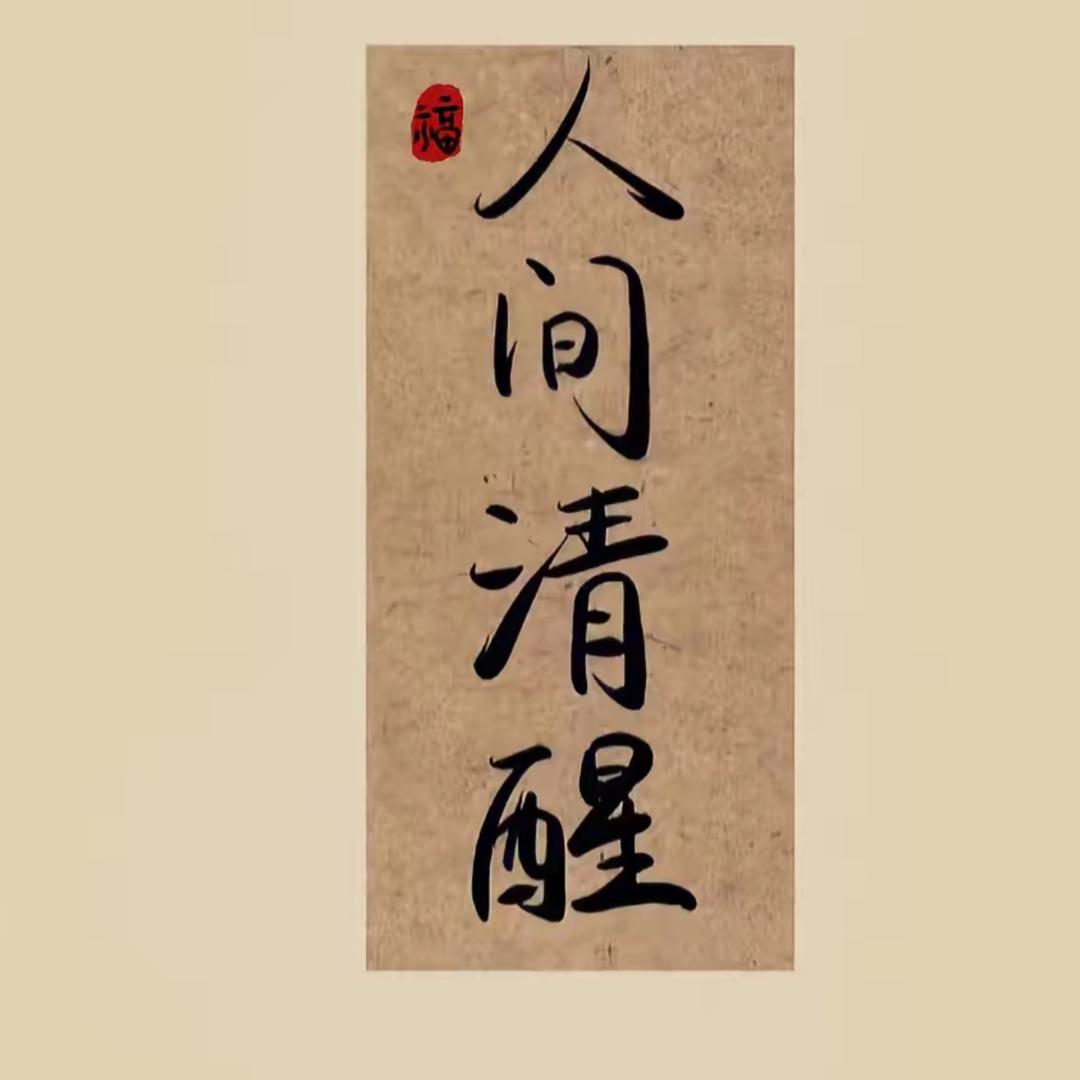 人间清醒
福